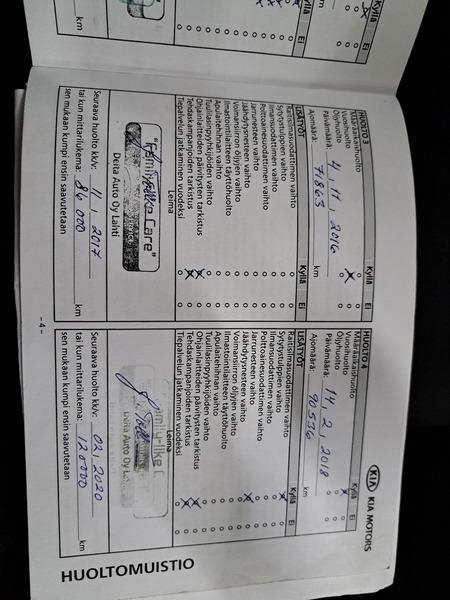 Kyllä Ei
km
HUOLTO 3 Kyllä Ei
Määräaikaishuolto
Vuosihuolto
Öljyhuolto
Päivämäärä: 4, 11, 2016
Ajomäärä: 71863 km
LISÄTYÖT Kyllä Ei
Raitisilmasuodattimen vaihto
Sytytystulppien vaihto
Ilmansuodattimen vaihto
Polttoainesuodattimen vaihto
Jarrunesteen vaihto
Jäähdytysnesteen vaihto
Voimansiirron öljyjen vaihto
Ilmastointilaitteen täyttöhuolto
Apulaitehihnan vaihto
Tuulilasinpyyhkijöiden vaihto
Ohjainlaitteiden päivitysten tarkistus
Tehdaskampanjoiden tarkistus
Tiepalvelun jatkaminen vuodeksi
Leima
"Family-like Care"
Delta Auto Oy Lahti
Seuraava huolto kk/v: 11, 2017
tai kun mittarilukema: 86 000 km
sen mukaan kumpi ensin saavutetaan
KIA KIA MOTORS
HUOLTO 4 Kyllä Ei
Määräaikaishuolto
Vuosihuolto
Öljyhuolto
Päivämäärä: 14, 2, 2018
Ajomäärä: 90536 km
LISÄTYÖT Kyllä Ei
Raitisilmasuodattimen vaihto
Sytytystulppien vaihto
Ilmansuodattimen vaihto
Polttoainesuodattimen vaihto
Jarrunesteen vaihto
Jäähdytysnesteen vaihto
Voimansiirron öljyjen vaihto
Ilmastointilaitteen täyttöhuolto
Apulaitehihnan vaihto
Tuulilasinpyyhkijöiden vaihto
Ohjainlaitteiden päivitysten tarkistus
Tehdaskampanjoiden tarkistus
Tiepalvelun jatkaminen vuodeksi
Leima
Delta Auto Oy
Seuraava huolto kk/v: 02, 2020
tai kun mittarilukema: 120000 km
sen mukaan kumpi ensin saavutetaan
- 4 -
HUOLTOMUISTIO